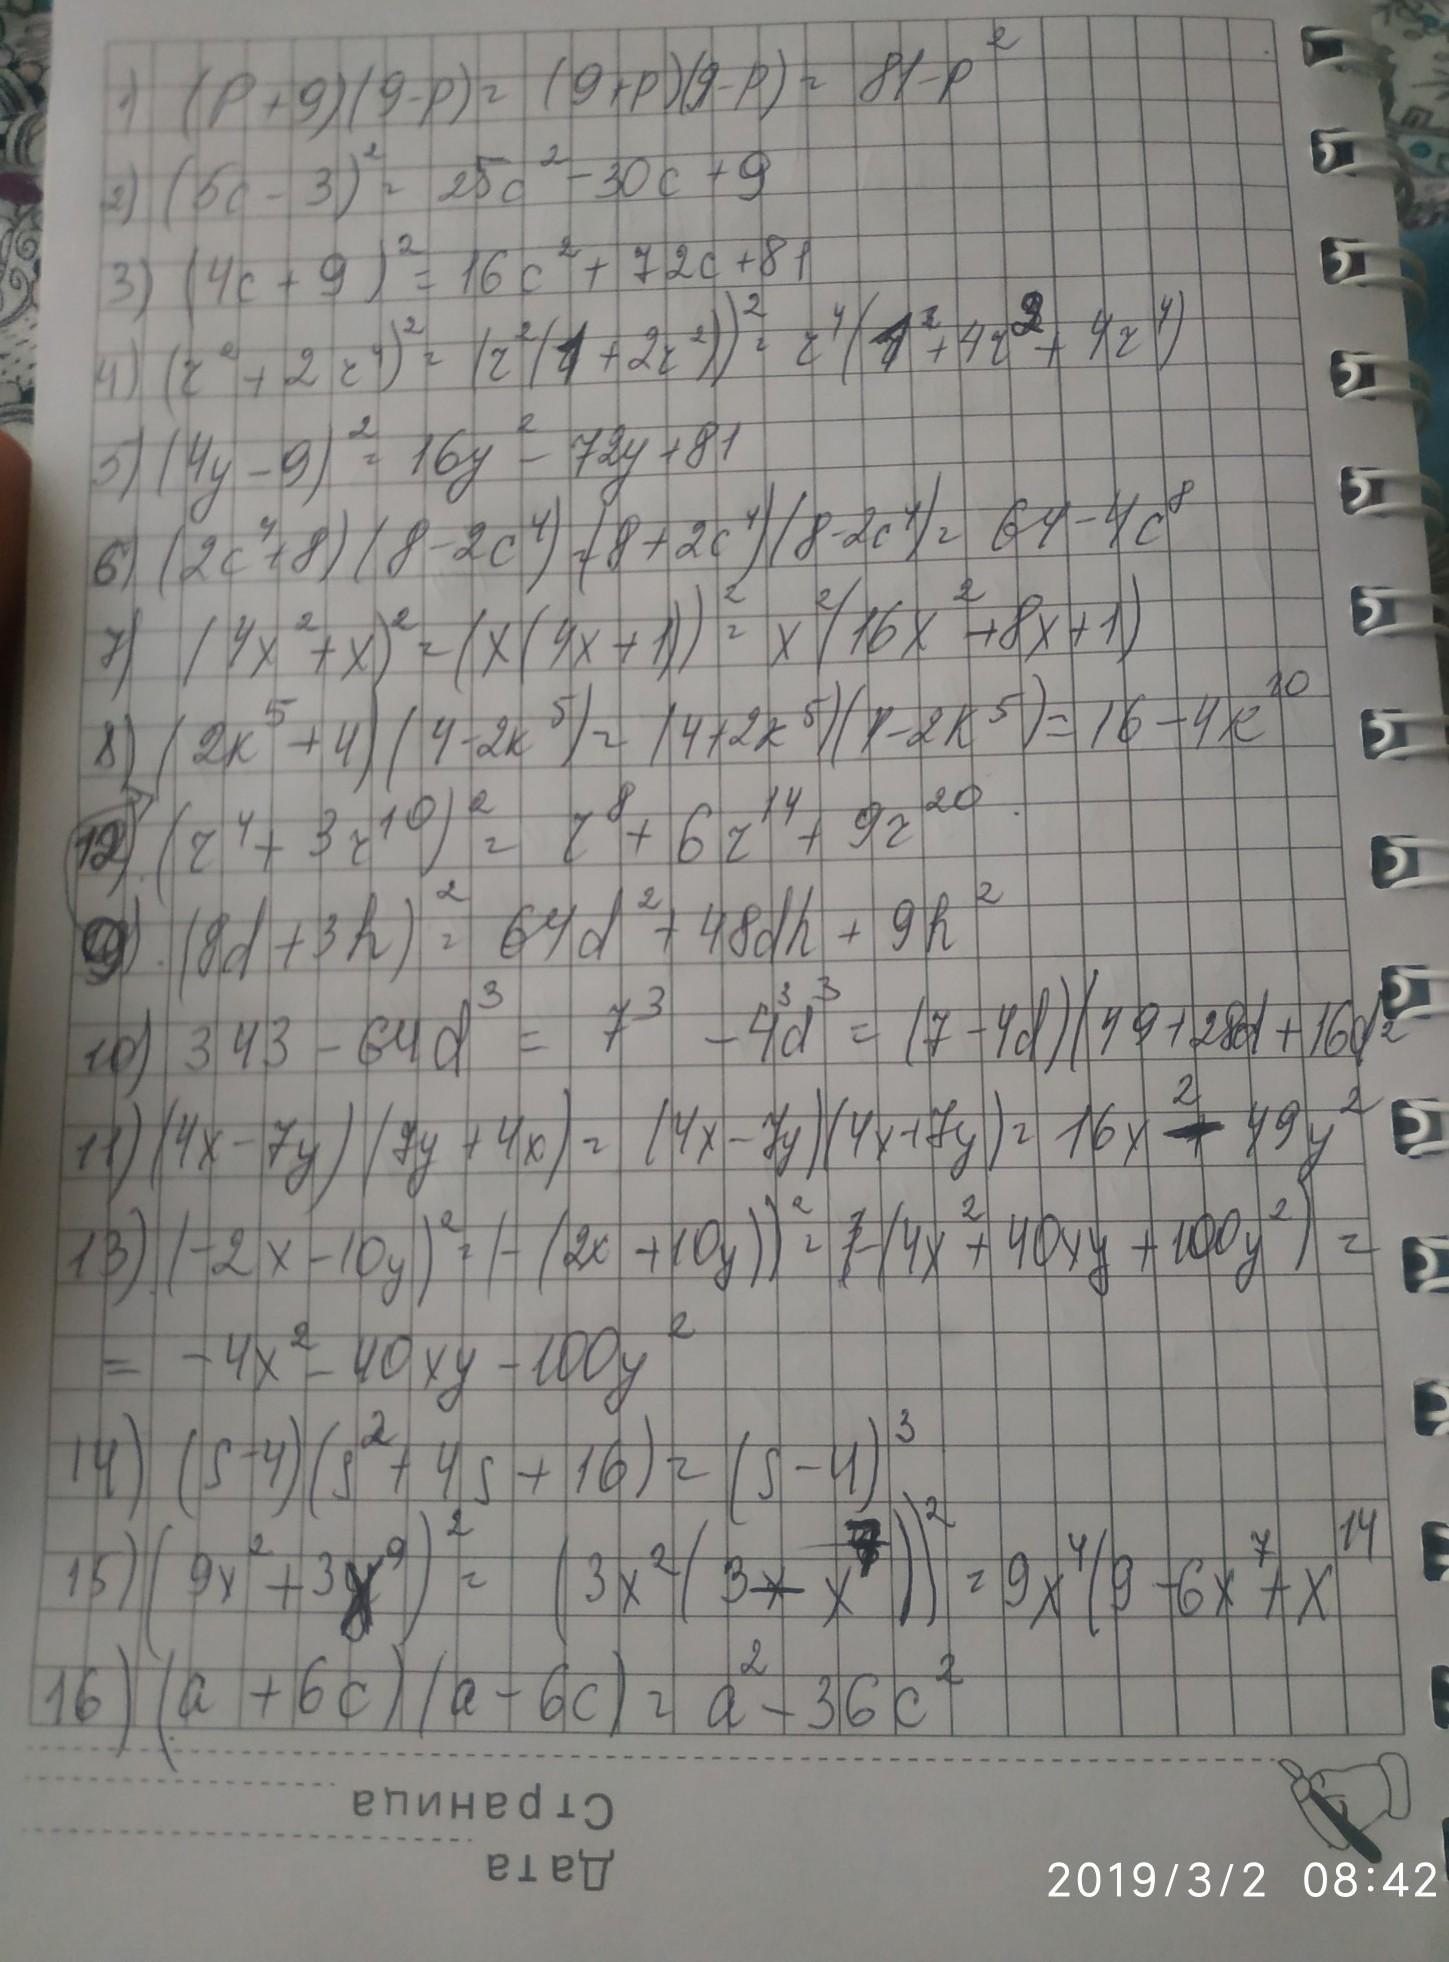 1) (p+9)(9-p)= (9+p)(9-p)= 81-p²
2) (5c-3)²= 25c²-30c+9
3) (4c+9)²=16c²+72c+81
4) (z²+2z⁴)²= (z²(1+2z²))²= z⁴(1²+4z²+4z⁴)
5) (4y-9)²= 16y²-72y+81
6) (2c⁴+8)(8-2c⁴)=(8+2c⁴)(8-2c⁴)= 64-4c⁸
7) (4x²+x)²=(x(4x+1))²= x²(16x²+8x+1)
8) (2k⁵+4)(4-2k⁵)= (4+2k⁵)(4-2k⁵)=16-4k¹⁰
12) (z⁴+3z¹⁰)²= z⁸+6z¹⁴+9z²⁰
9) (8d+3h)²= 64d²+48dh+9h²
10) 343-64d³= 7³-4³d³=(7-4d)(49+28d+16d²
11) (4x-7y)(7y+4x)= (4x-7y)(4x+7y)= 16x²-49y²
13) (-2x-10y)²=(-(2x+10y))²= -(4x²+40xy+100y²)=
= -4x²-40xy-100y²
14) (s-4)(s²+4s+16)= (s-4)³
15) (9x²+3x⁹)²= (3x²(3+x⁷))²=9x⁴(9-6x⁷+x¹⁴
16) (a+6c)(a-6c)= a²-36c²
Страница
Дата
2019/3/2 08:42